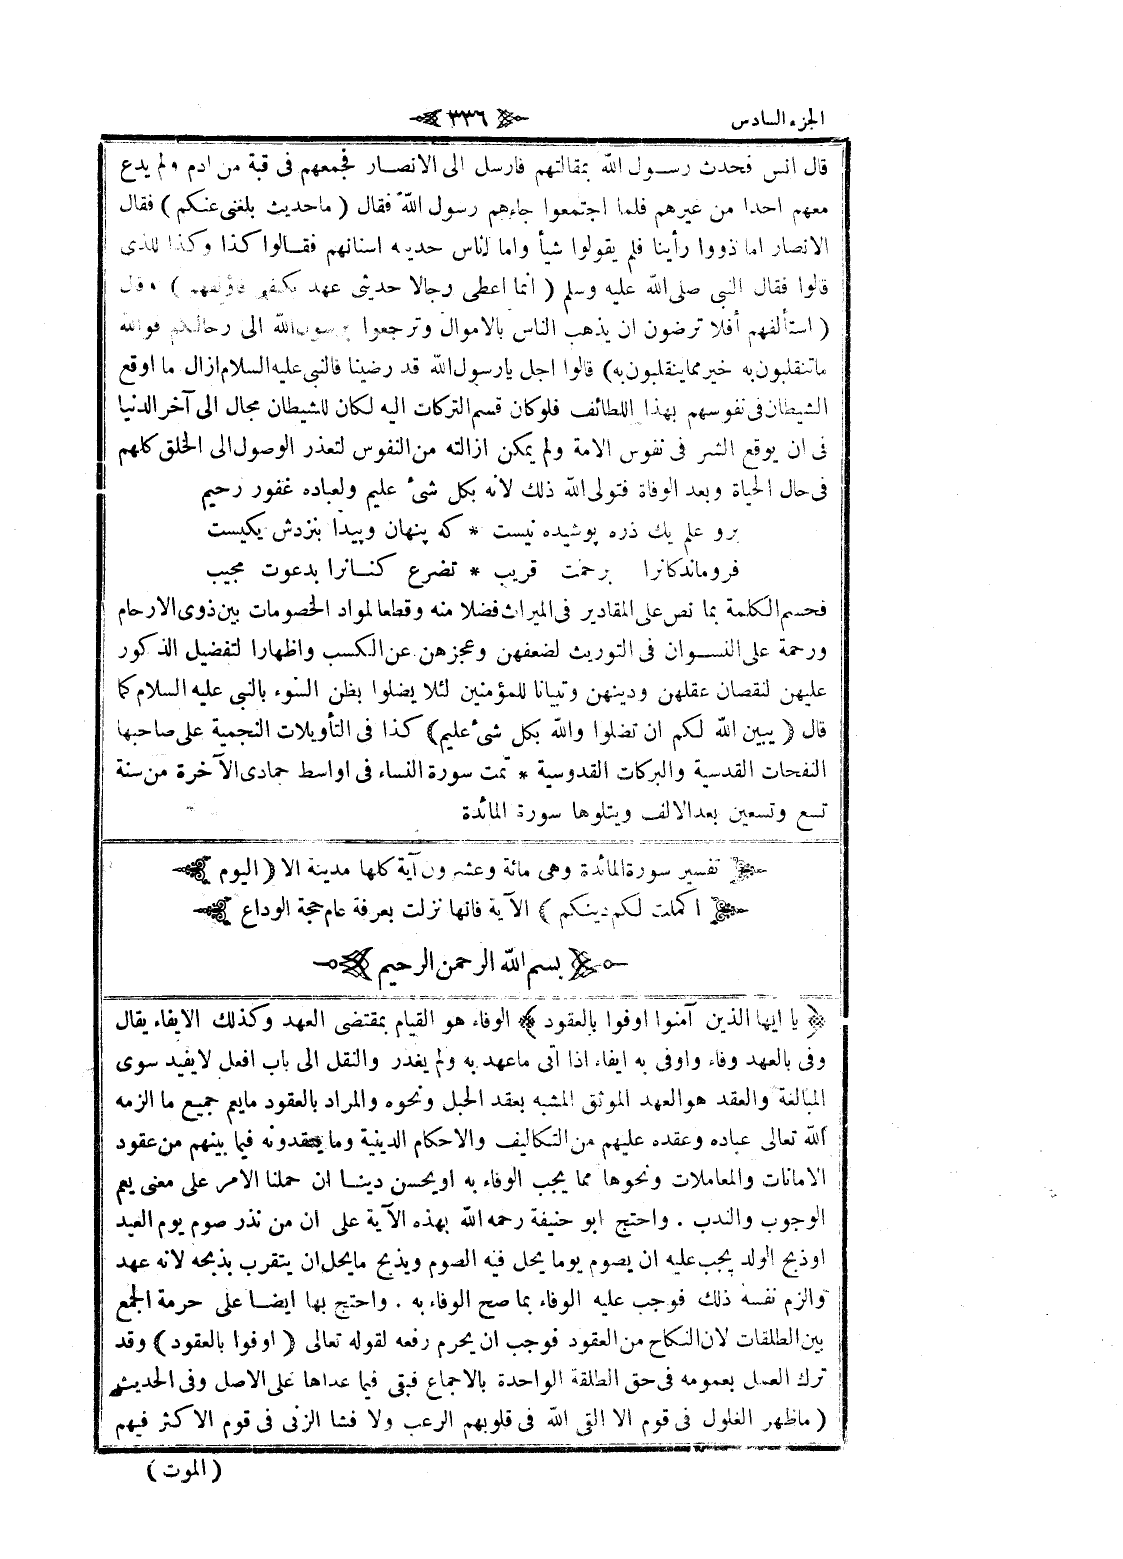 الجزء السادس
٣٣٦
قال انس فحدث رسول الله بمقالتهم فارسل الى الانصار فجمعهم فى قبة من ادم ولم يدع
معهم احدا من غيرهم فلما اجتمعوا جاءهم رسول الله فقال ( ماحديث بلغنى عنكم ) فقال
الانصار اما ذووا رأينا فلم يقولوا شيأ واما اناس حديثه اسنانهم فقالوا كذا وكذا للذى
قالوا فقال النبى صلى الله عليه وسلم ( انما اعطى رجالا حديثى عهد بكفر فاؤلفهم ) وقال
( استألفهم أفلا ترضون ان يذهب الناس بالاموال وترجعوا برسول الله الى رحالكم فوالله
ماتنقلبون به خير مماينقلبون به) قالوا اجل يارسول الله قد رضينا فالنبى عليه السلام ازال ما اوقع
الشيطان فى نفوسهم بهذا اللطائف فلوكان قسم التركات اليه لكان للشيطان مجال الى آخر الدنيا
فى ان يوقع الشر فى نفوس الامة ولم يمكن ازالته من النفوس لتعذر الوصول الى الخلق كلهم
فى حال الحياة وبعد الوفاة فتولى الله ذلك لانه بكل شئ عليم ولعباده غفور رحيم
برو علم يك ذره پوشيده نيست * كه پنهان وپيدا بنزدش يكيست
فروماندكانرا برحمت قريب * تضرع كنانرا بدعوت مجيب
فحسم الكلمة بما نص على المقادير فى الميراث فضلا منه وقطعا لمواد الخصومات بين ذوى الارحام
ورحمة على النسوان فى التوريث لضعفهن وعجزهن عن الكسب واظهارا لتفضيل الذكور
عليهن لنقصان عقلهن ودينهن وتبيانا للمؤمنين لئلا يضلوا بظن السوء بالنبى عليه السلام كما
قال ( يبين الله لكم ان تضلوا والله بكل شئ عليم) كذا فى التأويلات النجمية على صاحبها
النفحات القدسية والبركات القدوسية * تمت سورة النساء فى اواسط جمادى الآخرة من سنة
تسع وتسعين بعد الالف ويتلوها سورة المائدة
تفسير سورة المائدة وهى مائة وعشرون آية كلها مدينة الا ( اليوم
اكملت لكم دينكم ) الآية فانها نزلت بعرفة عام حجة الوداع
بسم الله الرحمن الرحيم
﴿ يا ايها الذين آمنوا اوفوا بالعقود ﴾ الوفاء هو القيام بمقتضى العهد وكذلك الايفاء يقال
وفى بالعهد وفاء واوفى به ايفاء اذا اتى ماعهد به ولم يغدر والنقل الى باب افعل لايفيد سوى
المبالغة والعقد هو العهد الموثق المشبه بعقد الحبل ونحوه والمراد بالعقود مايعم جميع ما الزمه
الله تعالى عباده وعقده عليهم من التكاليف والاحكام الدينية ومايعقدونه فيما بينهم من عقود
الامانات والمعاملات ونحوها مما يجب الوفاء به اويحسن دينا ان حملنا الامر على معنى يعم
الوجوب والندب . واحتج ابو حنيفة رحمه الله بهذه الآية على ان من نذر صوم يوم العيد
اوذبح الولد يجب عليه ان يصوم يوما يحل فيه الصوم ويذبح مايحل ان يتقرب بذبحه لانه عهد
والزم نفسه ذلك فوجب عليه الوفاء بما صح الوفاء به . واحتج بها ايضا على حرمة الجمع
بين الطلقات لان النكاح من العقود فوجب ان يحرم رفعه لقوله تعالى ( اوفوا بالعقود) وقد
ترك العمل بعمومه فى حق الطلقة الواحدة بالاجماع فبقى فيما عداها على الاصل وفى الحديث
( ماظهر الغلول فى قوم الا القى الله فى قلوبهم الرعب ولا فشا الزنى فى قوم الا كثر فيهم
( الموت )